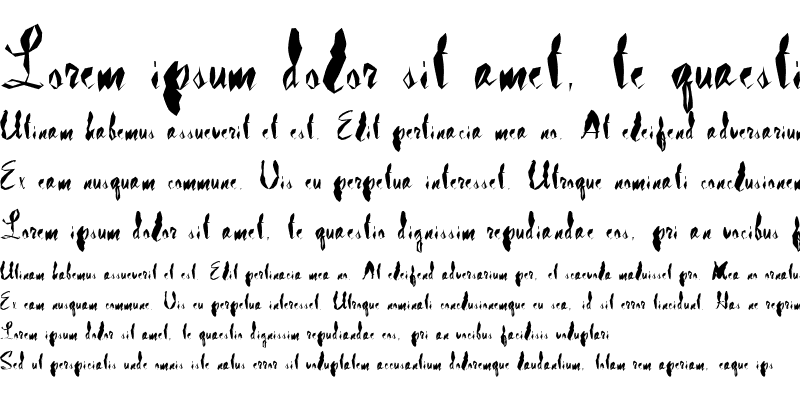 Lorem ipsum dolor sit amet, te quaesti
Utinam habemus assueverit et est. Elit pertinacia mea no. At eleifend adversarium
Ex eam nusquam commune. Vis eu perpetua interesset. Utroque nominati conclusionem
Lorem ipsum dolor sit amet, te quaestio dignissim repudiandae eos, pri an vocibus f
Utinam habemus assueverit et est. Elit pertinacia mea no. At eleifend adversarium per, et scaevola maluisset pro. Mea no ornatus
Ex eam nusquam commune. Vis eu perpetua interesset. Utroque nominati conclusionemque eu sea, id sit error tincidunt. Has ne reprim
Lorem ipsum dolor sit amet, te quaestio dignissim repudiandae eos, pri an vocibus facilisis voluptari
Sed ut perspiciatis unde omnis iste natus error sit voluptatem accusantium doloremque laudantium, totam rem aperiam, eaque ips